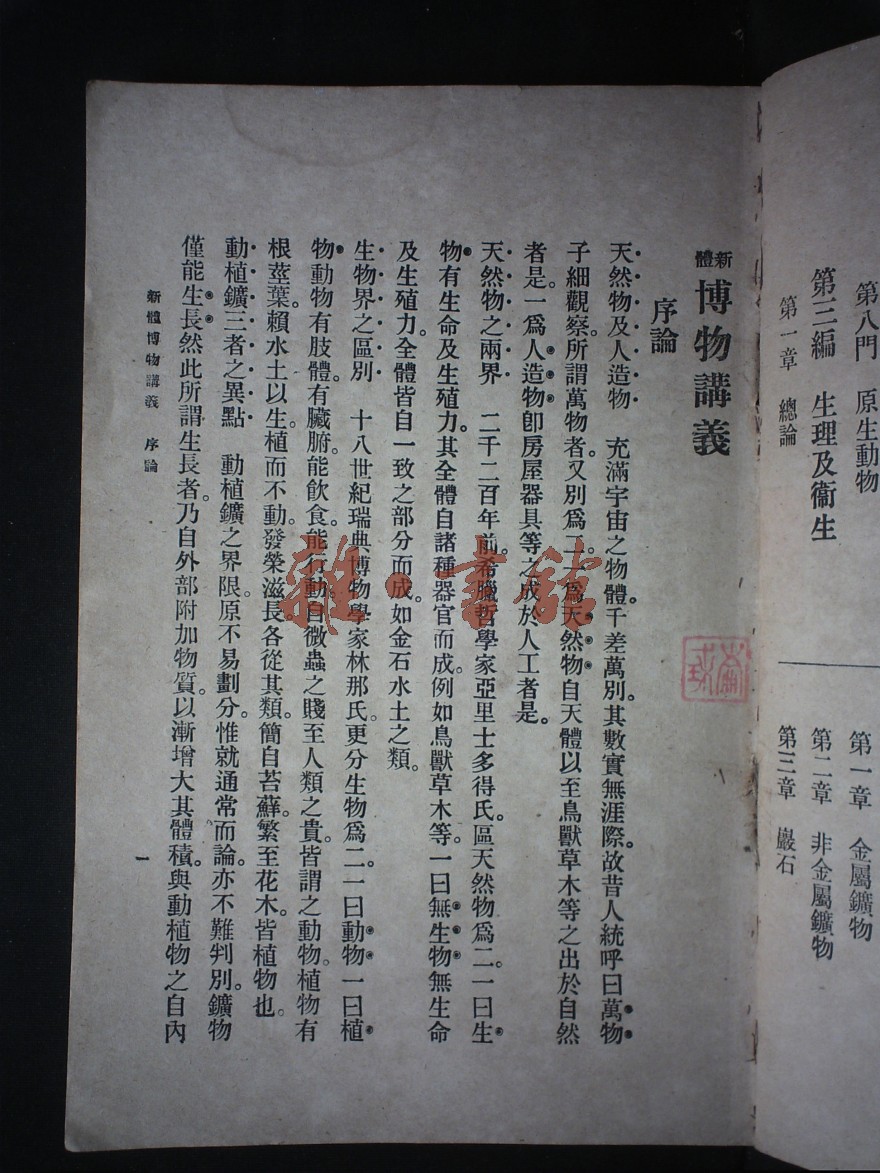 第八門　原生動物
第三編　生理及衞生
第一章　總論
第一章　金屬鑛物
第二章　非金屬鑛物
第三章　巖石
新體博物講義
序論
天然物及人造物　充滿宇宙之物體。千差萬別。其數實無涯際。故昔人統呼曰萬物
子細觀察。所謂萬物者。又別爲二。一爲天然物。自天體以至鳥獸草木等之出於自然
者是。一爲人造物。卽房屋器具等之成於人工者是。
天然物之兩界　二千二百年前。希臘哲學家亞里士多得氏。區天然物爲二。一曰生
物。有生命及生殖力。其全體自諸種器官而成。例如鳥獸草木等。一曰無生物。無生命
及生殖力。全體皆自一致之部分而成。如金石水土之類。
生物界之區別　十八世紀瑞典博物學家林那氏。更分生物爲二。一曰動物。一曰植
物。動物有肢體。有臟腑。能飮食。能行動。自微蟲之賤。至人類之貴。皆謂之動物。植物有
根莖葉。賴水土以生。植而不動。發榮滋長。各從其類。簡自苔蘚。繁至花木。皆植物也。
動植鑛三者之異點　動植鑛之界限。原不易劃分。惟就通常而論。亦不難判別。鑛物
僅能生長。然此所謂生長者。乃自外部附加物質。以漸增大其體積。與動植物之自內
新體博物講義　序論
一
雜·書館